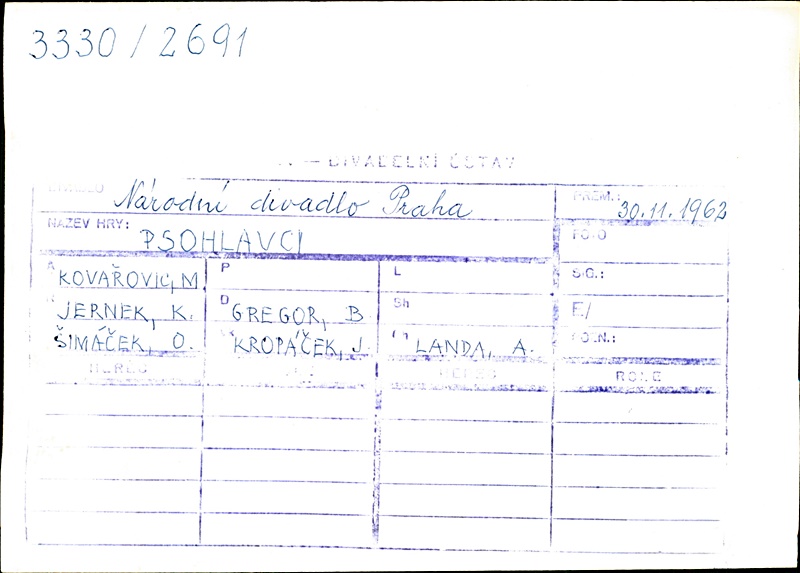 3330/2691
– DIVADELNÍ ÚSTAV
DIVADLO Národní divadlo Praha PREM.: 30.11.1962
NÁZEV HRY: PSOHLAVCI FOTO
A KOVAŘOVIC, M P L SG.:
JERNEK, K. D GREGOR, B Sh F/
ŠIMÁČEK, O. KROPÁČEK, J. LANDA, A.
HEREC HEREC ROLE